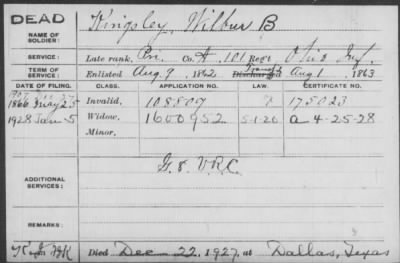 DEAD Kingsley, Wilbur B
NAME OF SOLDIER:
SERVICE: Late rank, Pri. Co. A, 101 Reg't Ohio Inf.
TERM OF SERVICE: Enlisted Aug. 9, 1862 Discharged Transf'd Aug 1, 1863
DATE OF FILING. CLASS. APPLICATION NO. LAW. CERTIFICATE NO.
1866 May 25 Invalid, 108809 175023
1928 Jan 5 Widow, 1600952 5-1-20 a 4-25-28
Minor,
ADDITIONAL SERVICES: G. 8. V.R.C.
REMARKS:
Died Dec 22, 1927, at Dallas, Texas